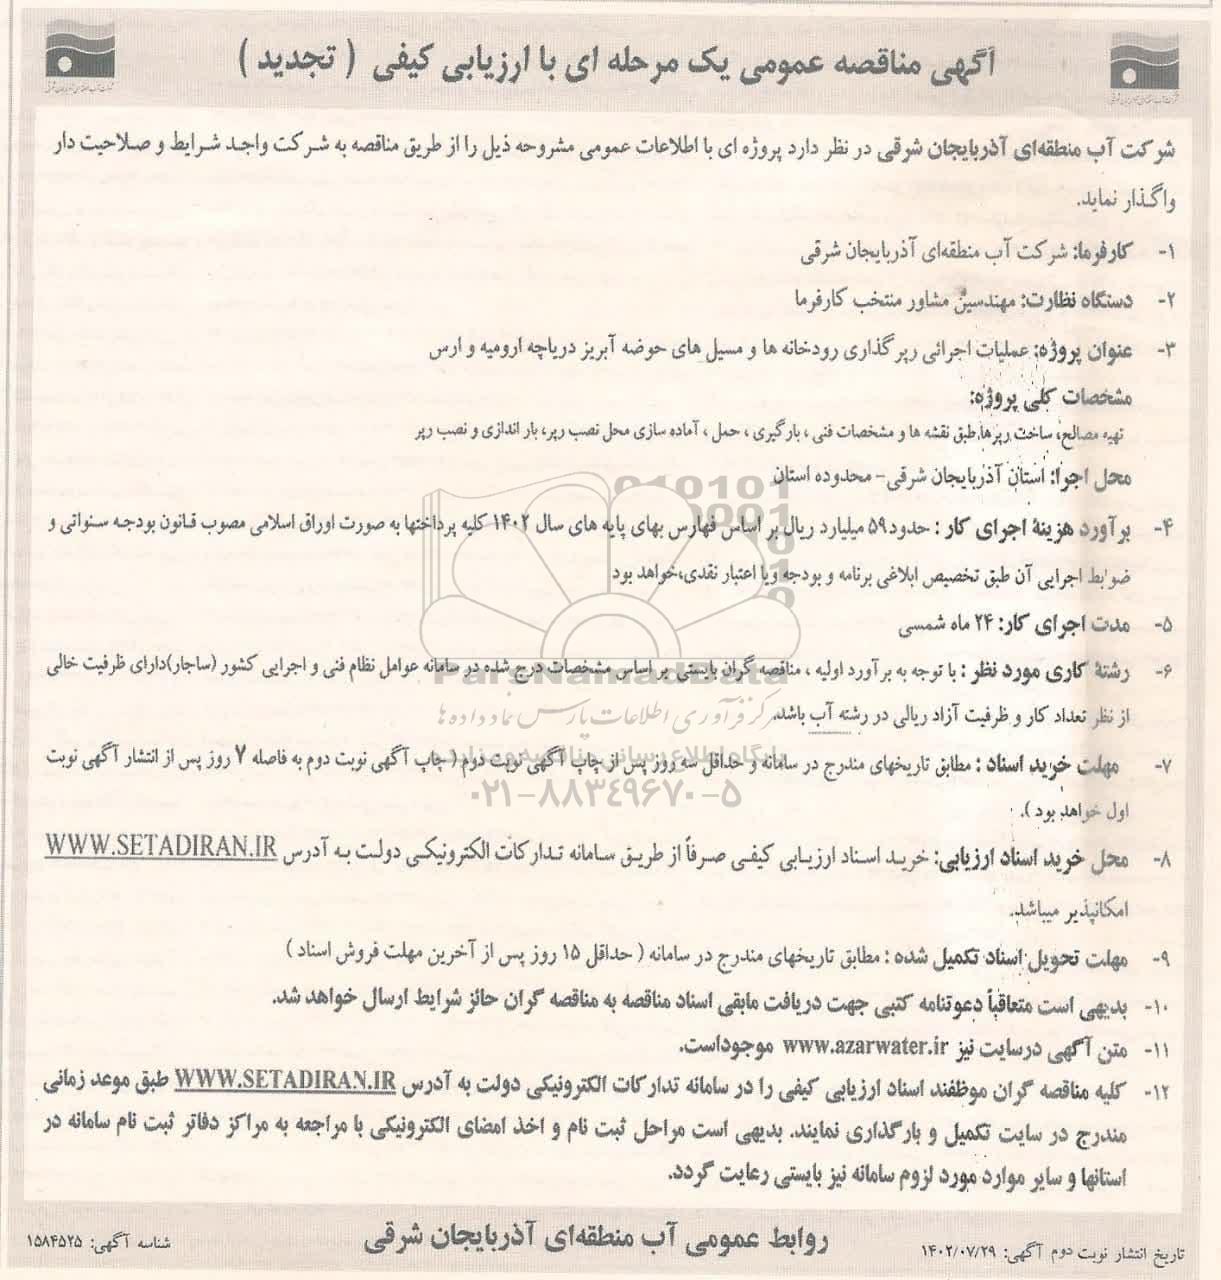 آگهی مناقصه عمومی یک مرحله ای با ارزیابی کیفی ( تجدید )
شرکت آب منطقه‌ای آذربایجان شرقی در نظر دارد پروژه ای با اطلاعات عمومی مشروحه ذیل را از طریق مناقصه به شرکت واجد شرایط و صلاحیت دار
واگذار نماید.
۱- کارفرما: شرکت آب منطقه‌ای آذربایجان شرقی
۲- دستگاه نظارت: مهندسین مشاور منتخب کارفرما
۳- عنوان پروژه: عملیات اجرائی رپرگذاری رودخانه ها و مسیل های حوضه آبریز دریاچه ارومیه و ارس
مشخصات کلی پروژه:
تهیه مصالح، ساخت رپرها طبق نقشه ها و مشخصات فنی ، بارگیری ، حمل ، آماده سازی محل نصب رپر، بار اندازی و نصب رپر
محل اجرا: استان آذربایجان شرقی- محدوده استان
۴- برآورد هزینۀ اجرای کار : حدود ۵۹ میلیارد ریال بر اساس فهارس بهای پایه های سال ۱۴۰۲ کلیه پرداختها به صورت اوراق اسلامی مصوب قانون بودجه سنواتی و
ضوابط اجرایی آن طبق تخصیص ابلاغی برنامه و بودجه ویا اعتبار نقدی،خواهد بود
۵- مدت اجرای کار: ۲۴ ماه شمسی
۶- رشتۀ کاری مورد نظر : با توجه به برآورد اولیه ، مناقصه گران بایستی بر اساس مشخصات درج شده در سامانه عوامل نظام فنی و اجرایی کشور (ساجار)دارای ظرفیت خالی
از نظر تعداد کار و ظرفیت آزاد ریالی در رشته آب باشد.
۷- مهلت خرید اسناد : مطابق تاریخهای مندرج در سامانه و حداقل سه روز پس از چاپ آگهی نوبت دوم ( چاپ آگهی نوبت دوم به فاصله ۷ روز پس از انتشار آگهی نوبت
اول خواهد بود ).
۸- محل خرید اسناد ارزیابی: خرید اسناد ارزیابی کیفی صرفاً از طریق سامانه تدارکات الکترونیکی دولت به آدرس WWW.SETADIRAN.IR
امکانپذیر میباشد.
۹- مهلت تحویل اسناد تکمیل شده : مطابق تاریخهای مندرج در سامانه ( حداقل ۱۵ روز پس از آخرین مهلت فروش اسناد )
۱۰- بدیهی است متعاقباً دعوتنامه کتبی جهت دریافت مابقی اسناد مناقصه به مناقصه گران حائز شرایط ارسال خواهد شد.
۱۱- متن آگهی درسایت نیز www.azarwater.ir موجوداست.
۱۲- کلیه مناقصه گران موظفند اسناد ارزیابی کیفی را در سامانه تدارکات الکترونیکی دولت به آدرس WWW.SETADIRAN.IR طبق موعد زمانی
مندرج در سایت تکمیل و بارگذاری نمایند. بدیهی است مراحل ثبت نام و اخذ امضای الکترونیکی با مراجعه به مراکز دفاتر ثبت نام سامانه در
استانها و سایر موارد مورد لزوم سامانه نیز بایستی رعایت گردد.
روابط عمومی آب منطقه‌ای آذربایجان شرقی
تاریخ انتشار نوبت دوم آگهی: ۱۴۰۲/۰۷/۲۹
شناسه آگهی: ۱۵۸۴۵۲۵
ParsNamadData
مرکز فرآوری اطلاعات پارس نماد داده ها
پایگاه اطلاع رسانی مناقصه و مزایده
۰۲۱-۸۸۳۴۹۶۷۰-۵